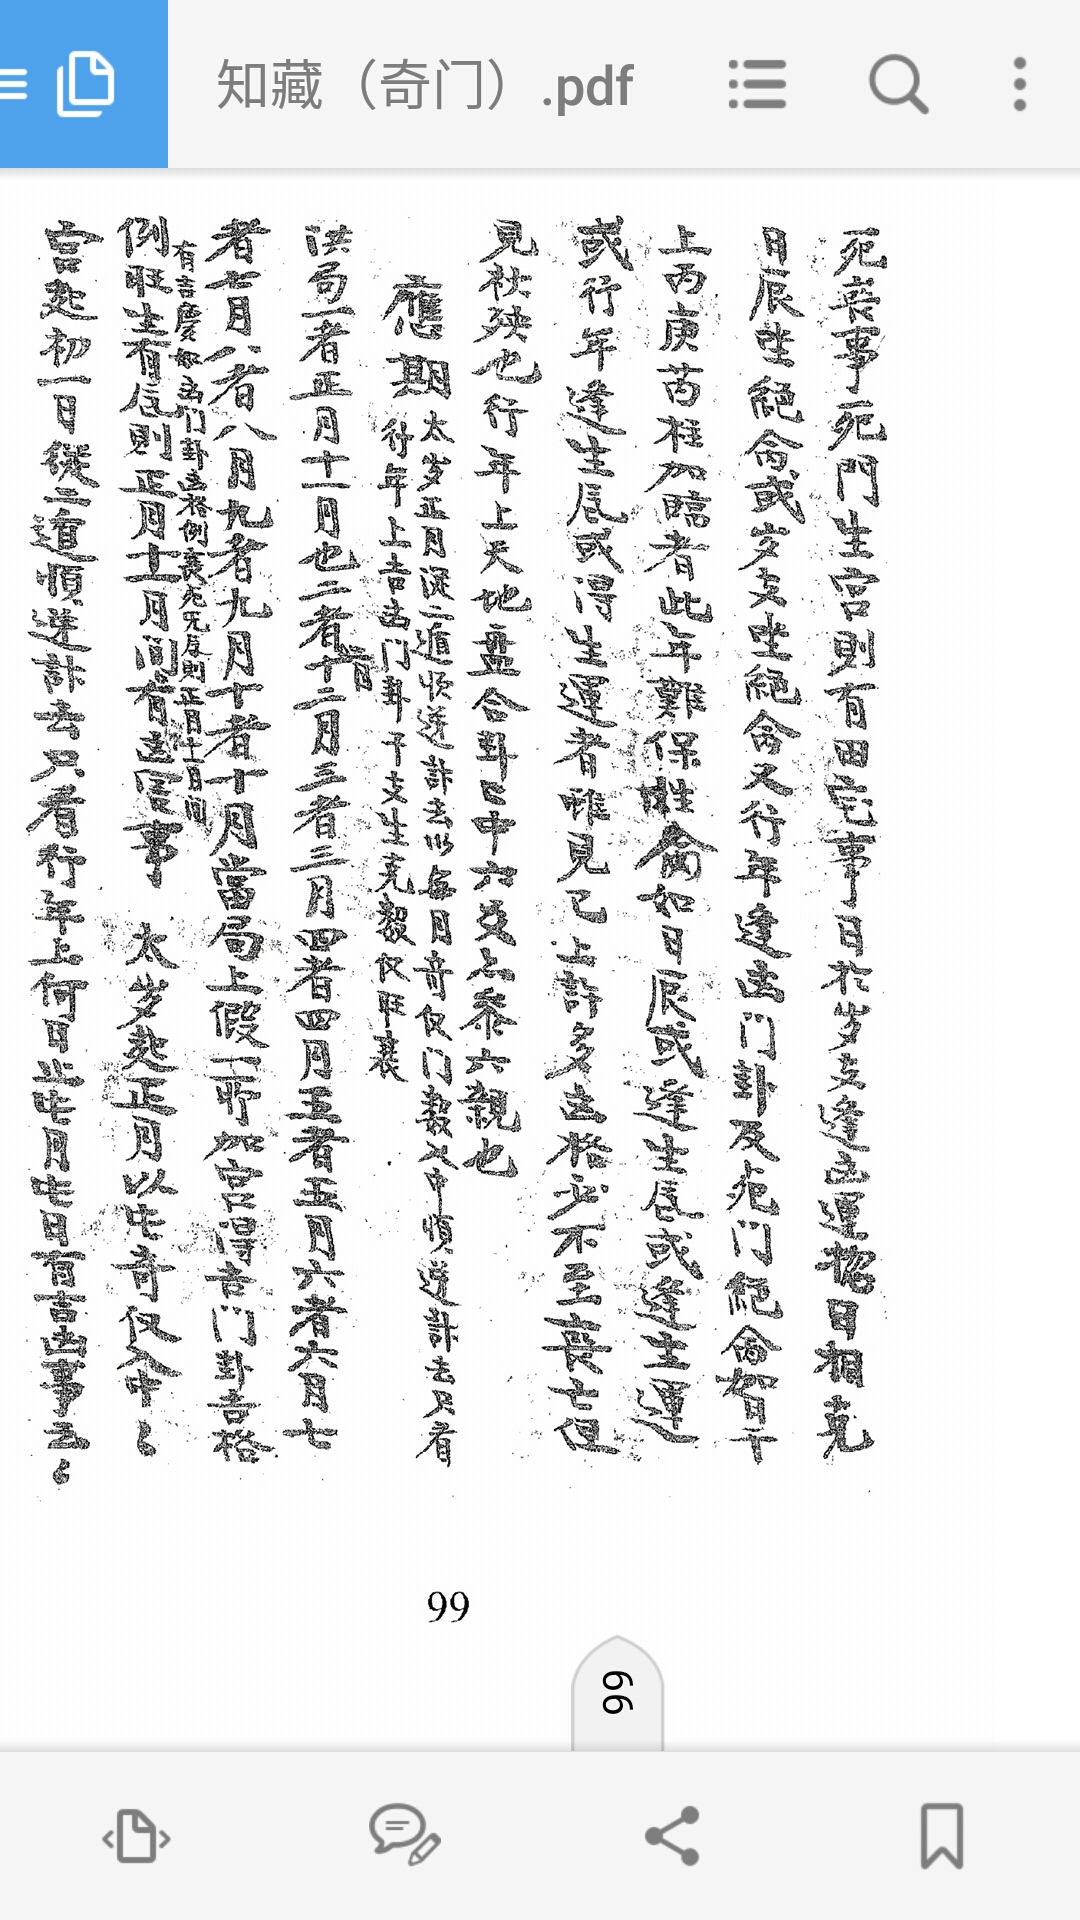 知藏（奇门）.pdf
死喪事死門生宮則有田宅事日於岁支逢凶運招日相克
日辰坐絕命或岁支坐絕命又行年逢凶门卦及死门絕命智日干
上丙庚芮柱加臨者此年難保性命如日辰或逢生辰或逢生運
或行年逢生辰或得生運者唯見已上許多凶格必不至喪亡但
見杖殃也行年上天地盘合卦巳中六爻占叅六親也
應期
太岁正月從二遁順逆計去以每月奇仪门数入中順逆計去只看
行年上吉凶门卦干支生克殺仪旺衰
洪局一者正月十一月也二者十二月三者三月四者四月五者五月六者六月七
者七月八者八月九者九月十者十月當局上假一所加宮得吉门卦吉格
有吉慶如凶门卦凶格例衰死无辰則正月十一月间
例旺生有辰則正月十一月间有凶官事 太岁起正月以此奇仪入中
宮起初一日從二遁順逆計去只看行年上何日此此月此日有吉凶事云
99
99